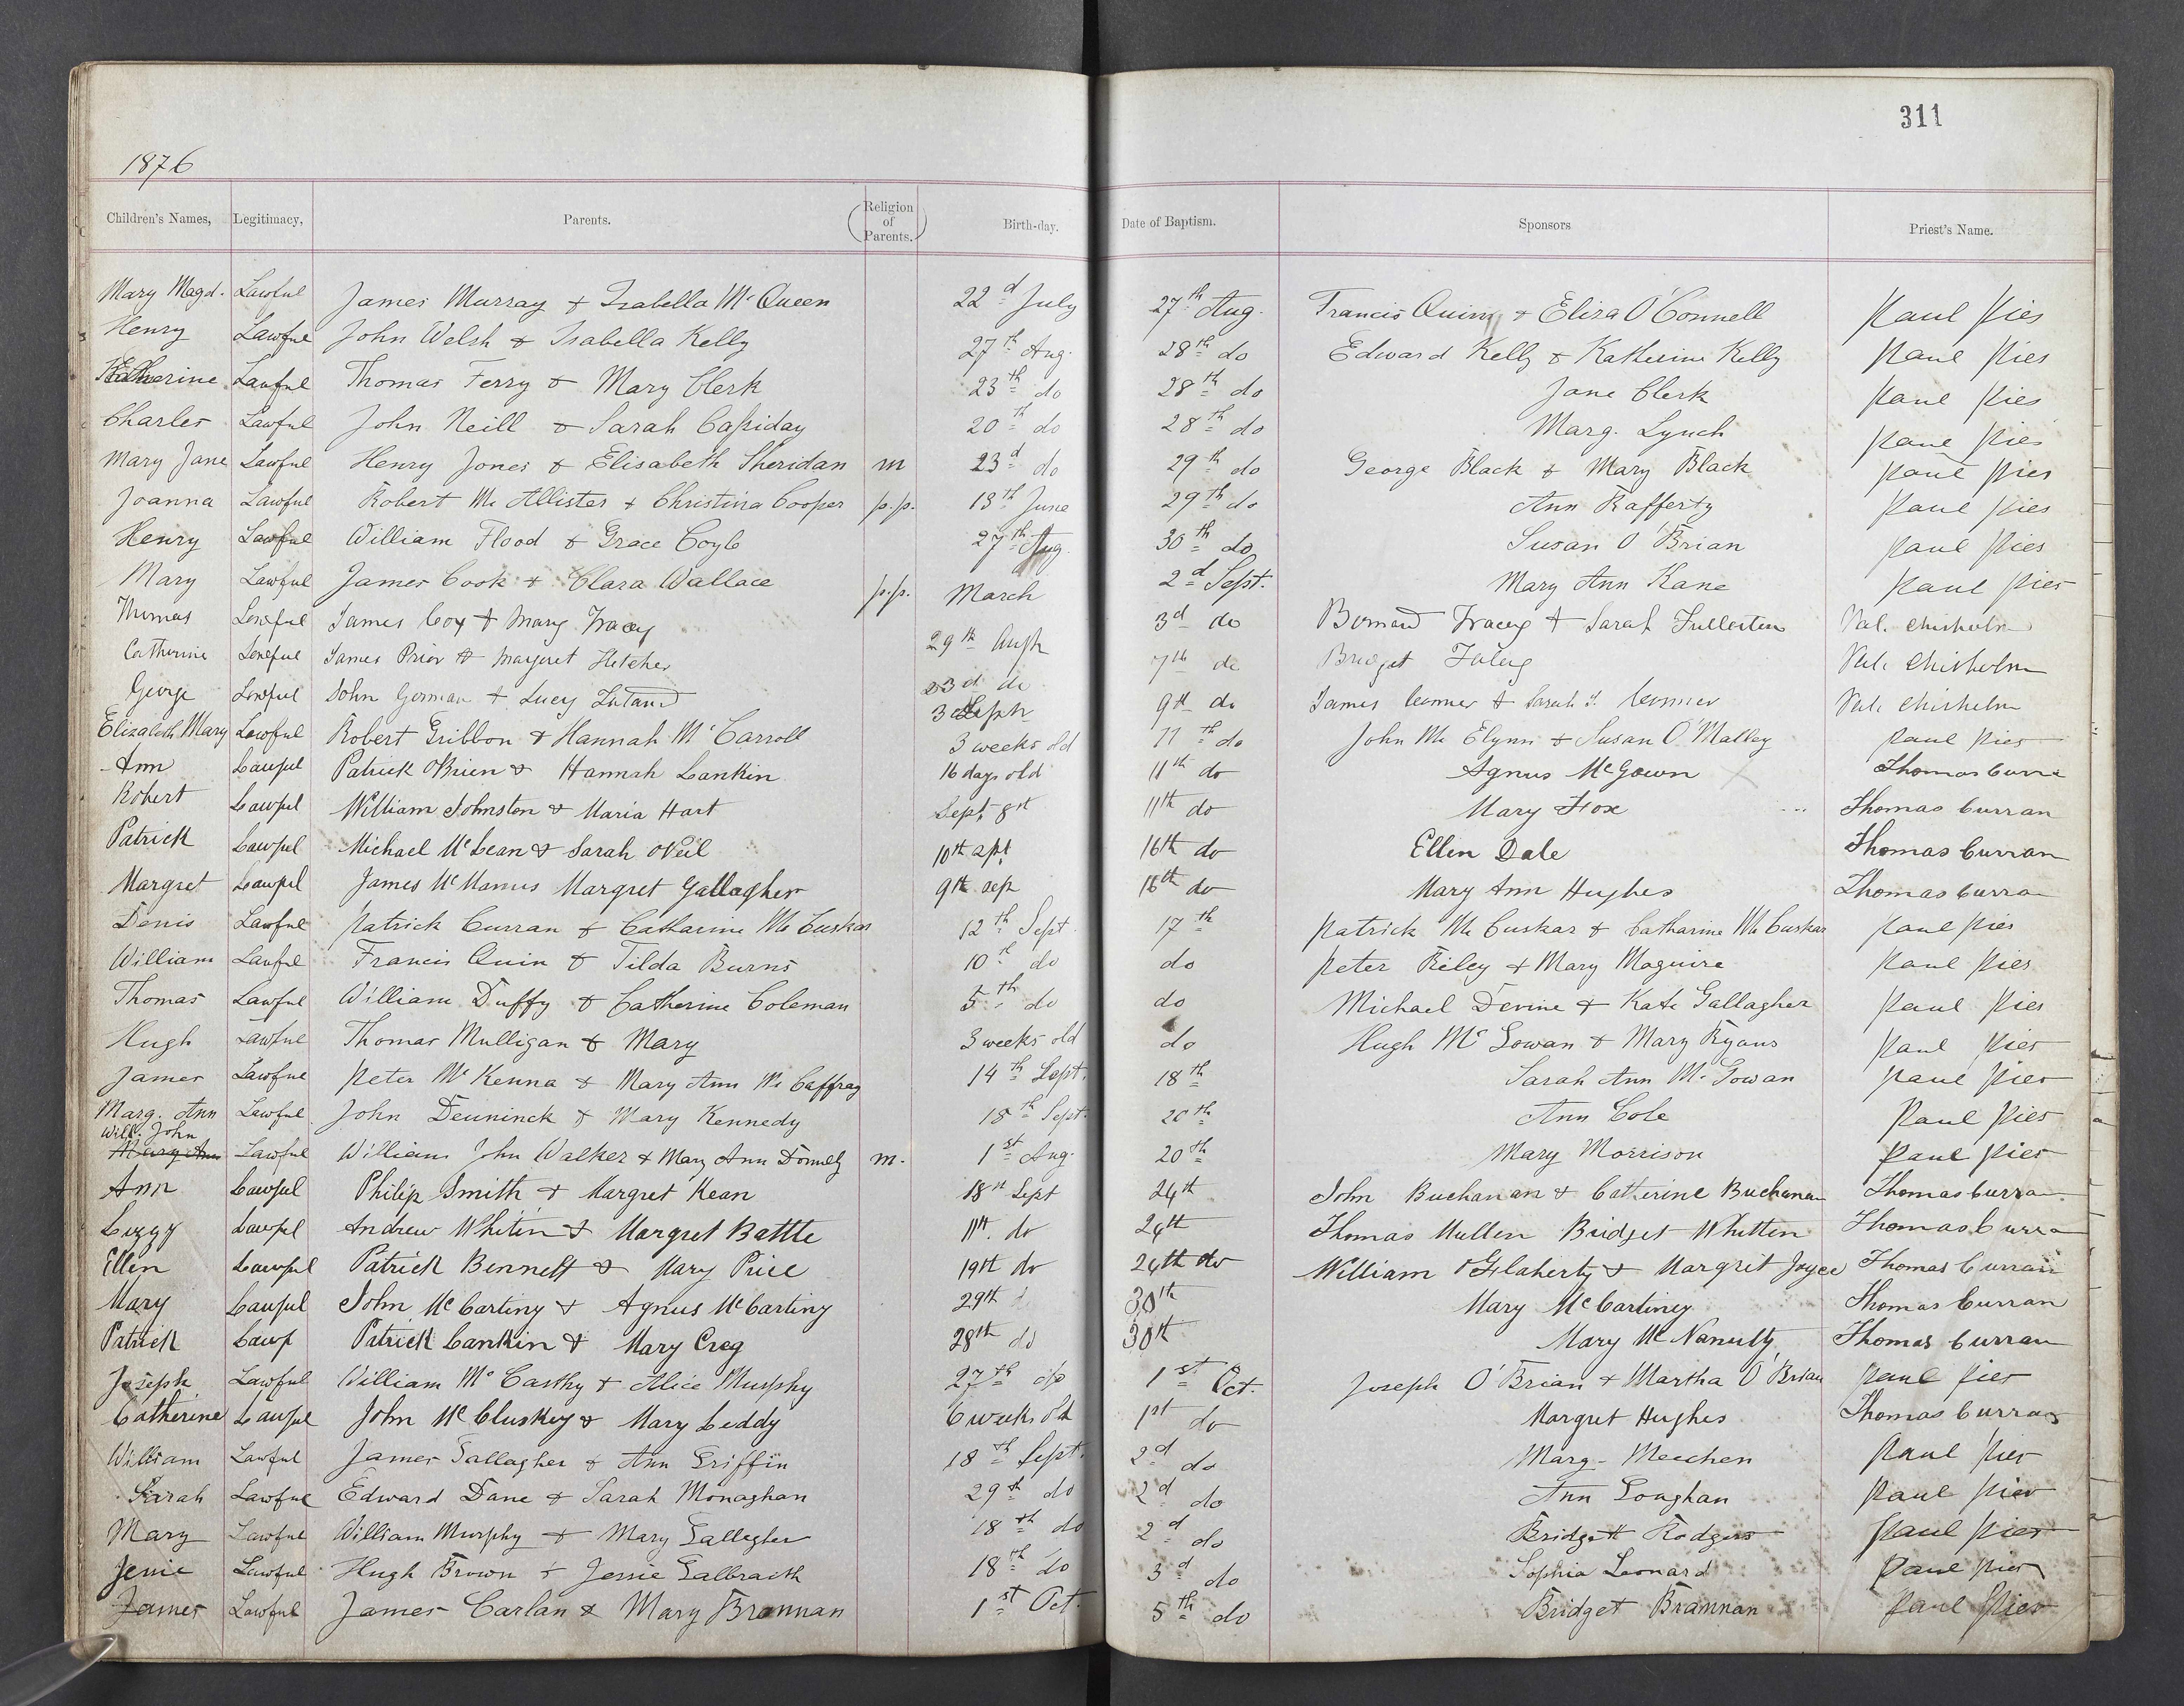 311
1876
Children's Names, Legitimacy, Parents. (Religion of Parents.) Birth-day. Date of Baptism. Sponsors Priest's Name.
Mary Magd. Lawful James Murray & Isabella McQueen 22d July 27th Aug. Francis Quinn & Eliza O'Connell Paul Pies
Henry Lawful John Welsh & Isabella Kelly 27th Aug. 28th do Edward Kelly & Katherine Kelly Paul Pies
Katherine Lawful Thomas Ferry & Mary Clerk 23th do 28th do Jane Clerk Paul Pies
Charles Lawful John Neill & Sarah Cassiday 20th do 28th do Marg. Lynch Paul Pies
Mary Jane Lawful Henry Jones & Elisabeth Sheridan m 23d do 29th do George Black & Mary Black Paul Pies
Joanna Lawful Robert Mc Allister & Christina Cooper p.p. 13th June 29th do Ann Rafferty Paul Pies
Henry Lawful William Flood & Grace Coyle 27th Aug. 30th do Susan O'Brian Paul Pies
Mary Lawful James Cook & Clara Wallace p.p. March 2d Sept. Mary Ann Kane Paul Pies
Thomas Lawful James Coy & Mary Tracey 29th 3d do Bernard Tracey & Sarah Fullerton Val. Chisholm
Catherine Lawful James Prior & Margeret Fletcher 23d do 7th do Bridget Foley Val. Chisholm
George Lawful John Gorman & Lucy 3d Sept 9th do James Connor & Sarah J. Connor Val. Chisholm
Elizabeth Mary Lawful Robert Gribbon & Hannah McCarroll 3 weeks old 11th do John Mc Elynn & Susan O'Malley Paul Pies
Ann Lawful Patrick OBrien & Hannah Lankin 16 days old 11th do Agnus McGown Thomas Curra
Robert Lawful William Johnston & Maria Hart Sept. 8th 11th do Mary Fox Thomas Curran
Patrick Lawful Michael McLean & Sarah ONeil 10th 16th do Ellen Dale Thomas Curran
Margret Lawful James McManus Margret Gallagher 9th sep 16th do Mary Ann Hughes Thomas Curran
Denis Lawful Patrick Curran & Catharine Mc Cuskar 12th Sept. 17th Patrick Mc Cuskar & Catharine Mc Cuskar Paul Pies
William Lawful Francis Quin & Tilda Burns 10th do do Peter Riley & Mary Maguire Paul Pies
Thomas Lawful William Duffy & Catherine Coleman 5th do do Michael Devine & Kate Gallagher Paul Pies
Hugh Lawful Thomas Mulligan & Mary 3 weeks old do Hugh McGowan & Mary Ryans Paul Pies
James Lawful Peter McKenna & Mary Ann Mc Caffray 14th Sept. 18th Sarah Ann McGowan Paul Pies
Marg. Ann Lawful John Deuninck & Mary Kennedy 18th Sept. 20th Ann Cole Paul Pies
Will. John
Mary Ann Lawful William John Walker & Mary Ann Donnely m. 1st Aug. 20th Mary Morrison Paul Pies
Ann Lawful Philip Smith & Margret Kean 18th Sept 24th John Buchanan & Catherine Buchanan Thomas Curran
Lizzy Lawful Andrew Whitin & Margret Battle 11th do 24th Thomas Mullen Bridget Whitten Thomas Curra
Ellen Lawful Patrick Bennett & Mary Price 19th do 24th do William OFlaherty & Margrit Joyce Thomas Curran
Mary Lawful John McCartiny & Agnus McCartiny 29th 30th Mary McCartiney Thomas Curran
Patrick Lawf Patrick Lankin & Mary Creg 28th do 30th Mary McNanulty Thomas Curran
Joseph Lawful William McCarthy & Alice Murphy 27th do 1st Oct. Joseph O'Brian & Martha O'Brian Paul Pies
Catherine Lawful John McCluskey & Mary Leddy 6 weeks old 1st do Margret Hughes Thomas Curran
William Lawful James Gallagher & Ann Griffin 18th Sept. 2d do Marg. Meechen Paul Pies
Sarah Lawful Edward Dane & Sarah Monaghan 29th do 2d do Ann Loughan Paul Pies
Mary Lawful William Murphy & Mary Gallagher 18th do 2d do Bridgett Rodgers Paul Pies
Jenie Lawful Hugh Brown & Jessie Galbraith 18th do 3d do Sophia Leonard Paul Pies
James Lawful James Carlan & Mary Brannan 1st Oct. 5th do Bridget Brannan Paul Pies